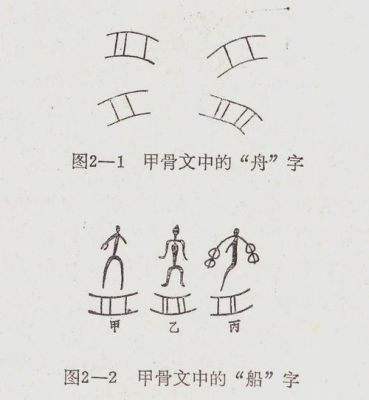 图2—1 甲骨文中的“舟”字
甲 乙 丙
图2—2 甲骨文中的“船”字